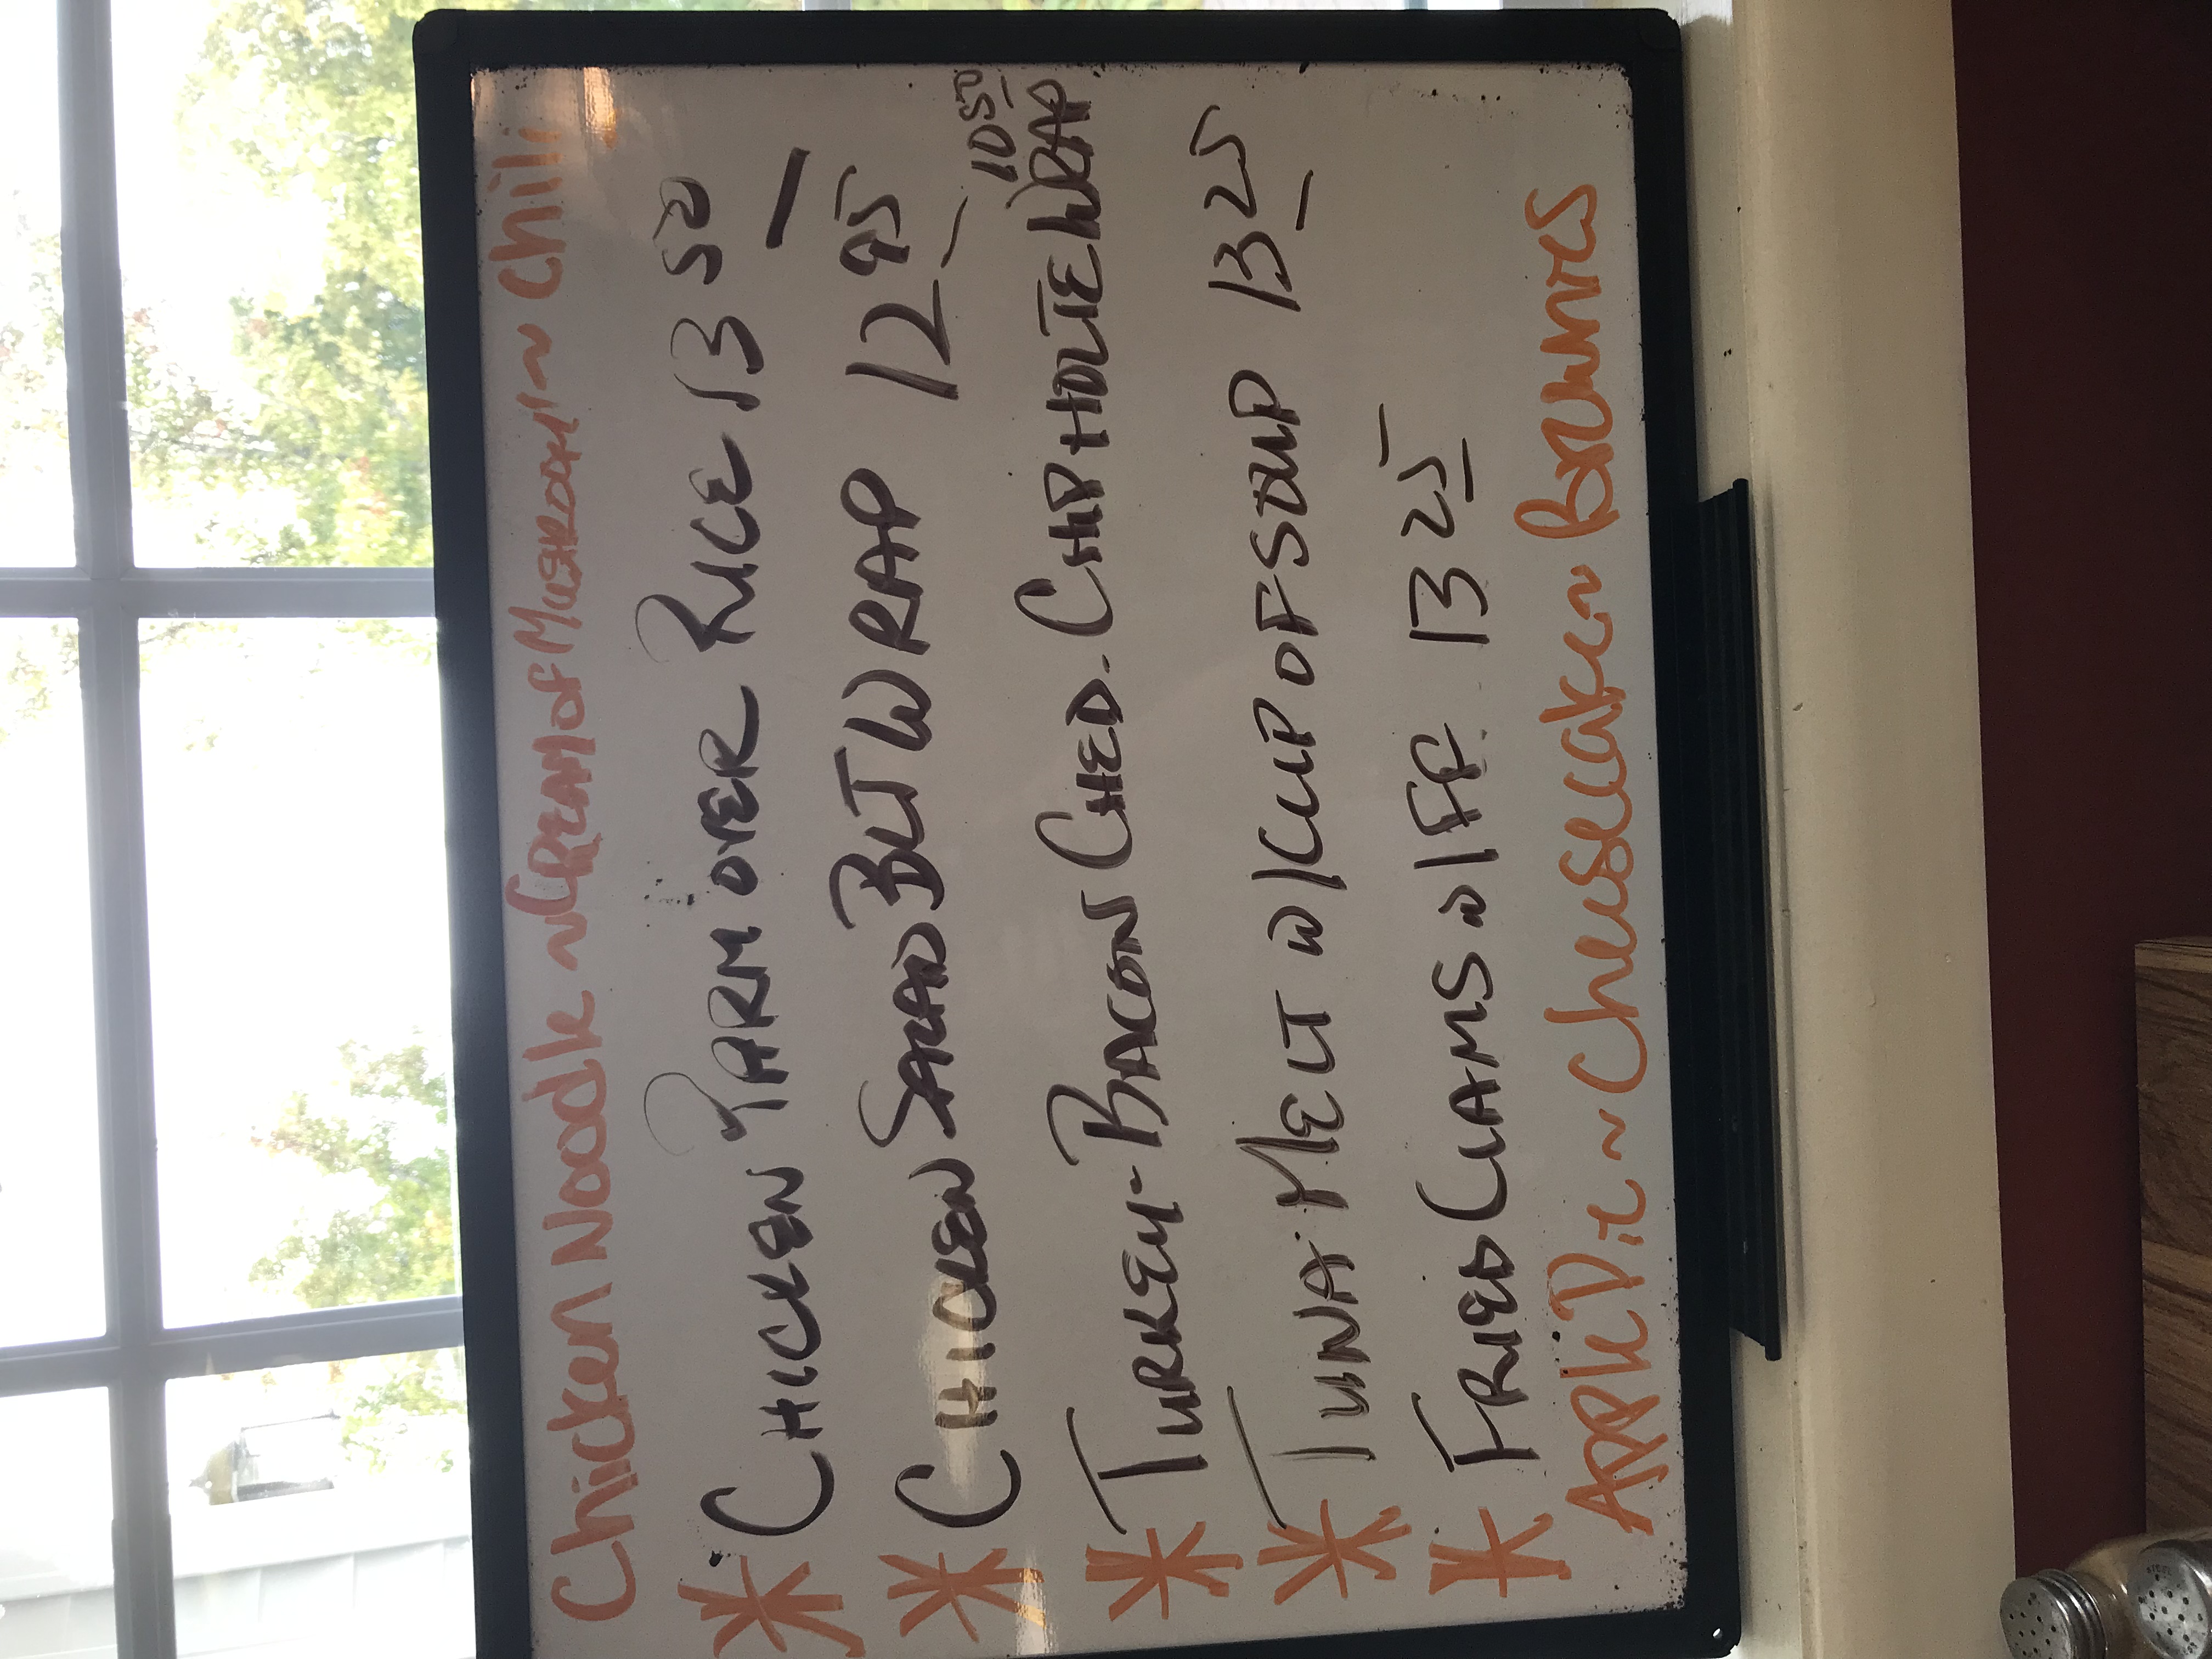 Chicken Noodle ~ CREAM of MUSHROOM ~ Chili
* CHICKEN PARM OVER RICE 13 50
* CHICKEN SALAD BLT WRAP 12 95
* TURKEY-BACON CHED. CHIPHOLTE WRAP 10 50
* TUNA MELT W/CUP OF SOUP 13 25
* FRIED CLAMS W/FF 13 25
Apple Pie ~ Cheesecake ~ Brownies